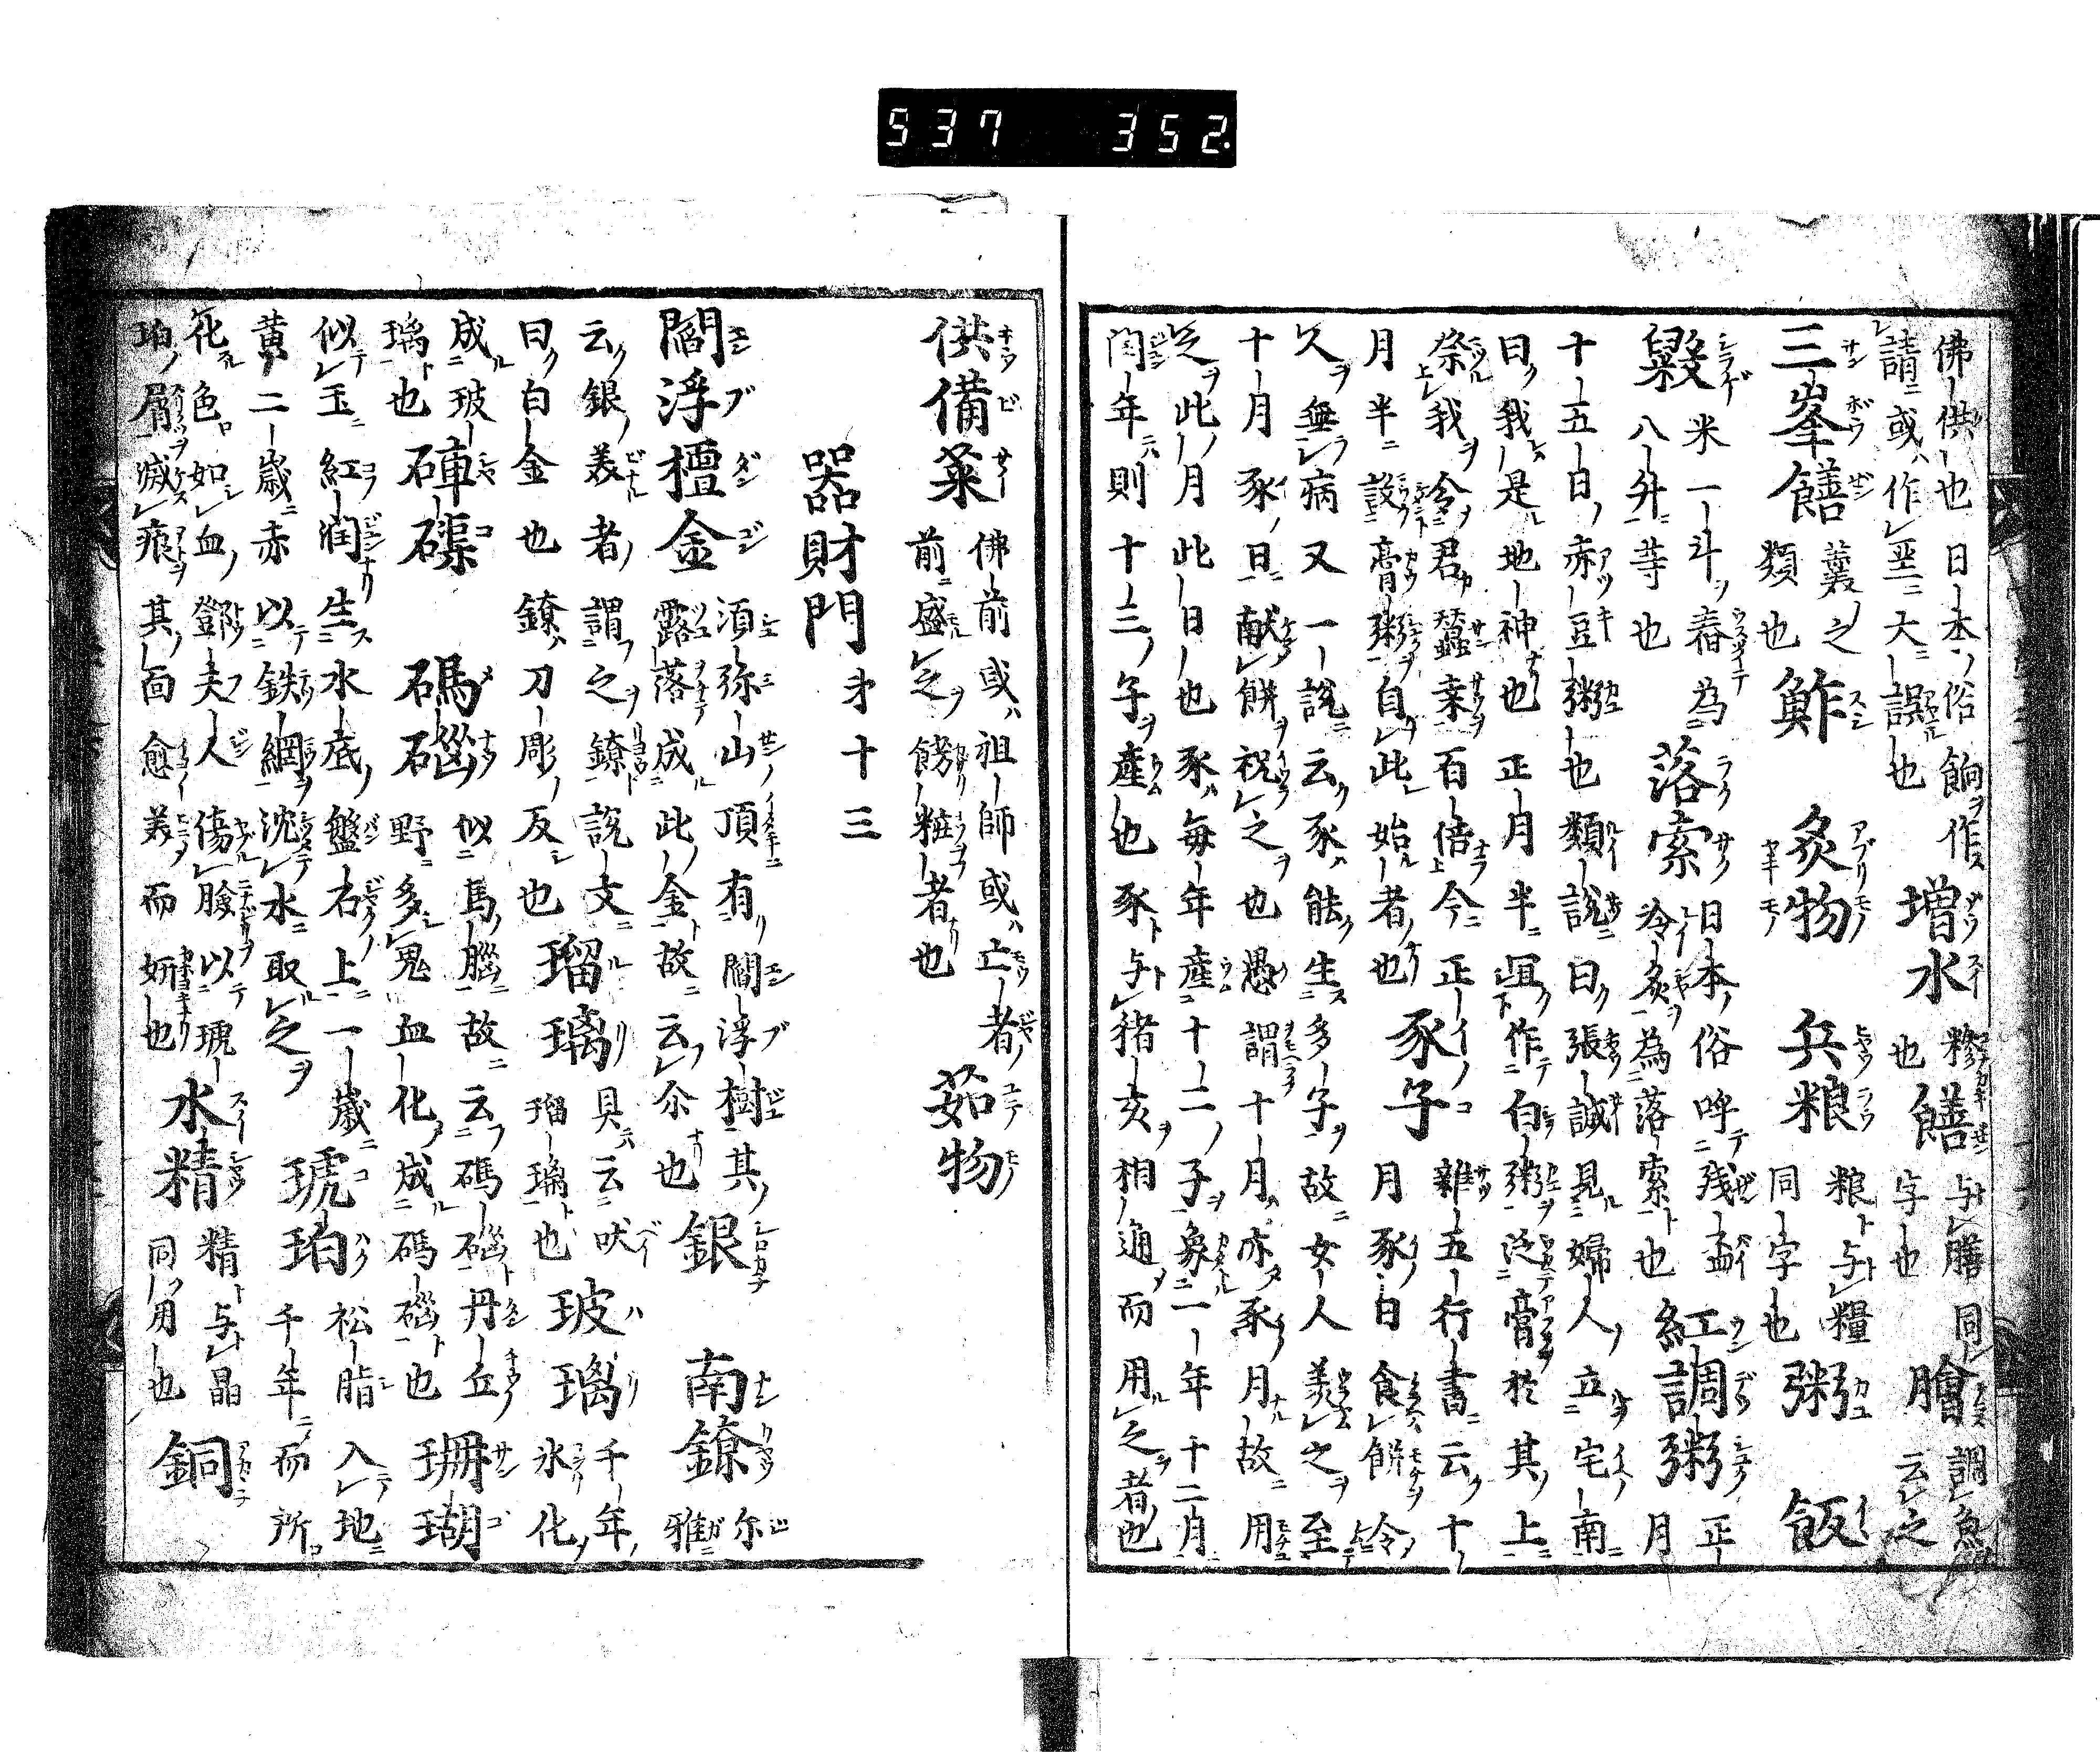 537 352.
佛供也日本俗餉作
請或作垩大誤也
増水
糝
也
饍
与膳同
字也
膾
調魚
云之
三峯饍
羹之
類也
鮓
炙物
兵粮
粮与糧
同字也
粥
飯
糳
米一斗舂為
八升䓁也
落索
日本俗呼残盃
冷炙為落索也
紅調粥
正
月
十五日赤豆粥也類說曰張誠見婦人立宅南
曰我是地神也正月半宜作白粥泛膏於其上
祭我令君蚕桒百倍今正
月半設膏粥自此始者也
雜五行書云十
豕子
月豕日食餅令
人無病又一說云豕能生多子故女人羨之至
十月豕日献餅祝之也愚謂十月亦豕月故用
之此月此日也豕每年産十二子象一年十二月
閏年則十三子産也豕与猪亥相通而用之者也
供備菜
佛前或祖師或亡者
前盛之餝粧者也
茹物
器財門第十三
閻浮檀金
須弥山頂有閻浮樹其
露落成此金故云尒也
銀
南鐐
尓
雅
云銀美者謂之鐐說文
曰白金也鐐刀彫反也
瑠璃
貝云吠
瑠璃也
玻璃
千年
氷化
成玻
璃也
硨磲
碼碯
似馬腦故云碼碯丹丘
野多鬼血化成碼碯也
珊瑚
似玉紅潤生水底盤石上一歳
黄二歳赤以鉄網沈水取之
琥珀
松脂入地
千年而所
化色如血鄧夫人傷臉以琥
珀屑滅痕其面愈美而妍也
水精
精与晶
同用也
銅